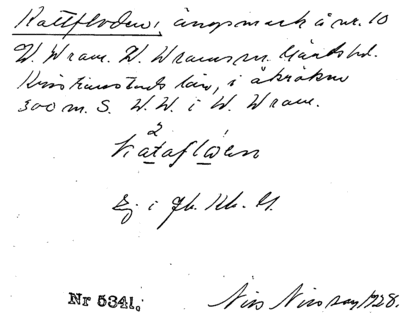 Kattfloden, ängsmark å nr. 10
V. Vram. V. Vrams sn. Gärds hd.
Kristianstads län, i åkröken
300 m. S. V. V. i V. Vram.
2
katafloden
Ej i Jb. Kb. G.
Nr 5341. Nils Nilsson 1928.